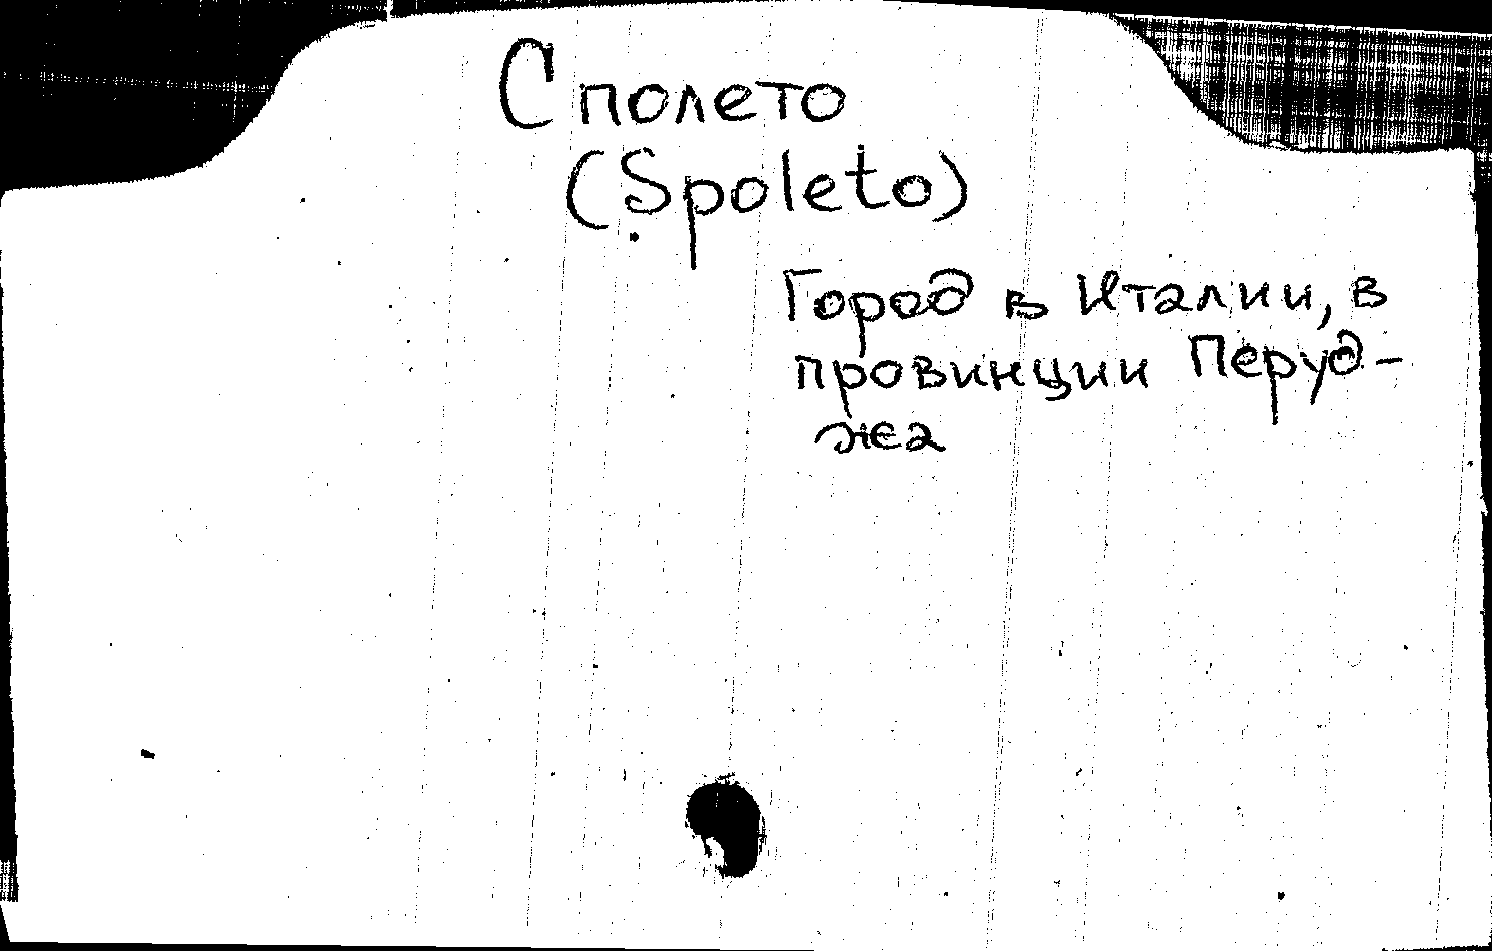 Сполето
(Spoleto)
Город в Италии, в
провинции Перуд-
жа